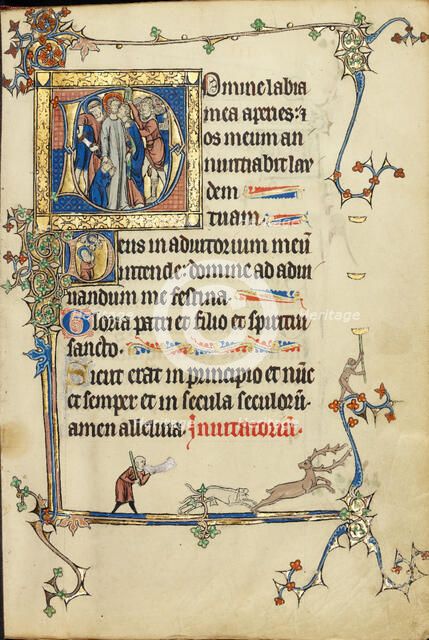 Domine labia
mea aperies: &
os meum an
nuntiabit lau
dem
tuam.
Deus in adiutorium meū
intende: domine ad adiu
uandum me festina.
Gloria patri et filio et spiritui
sancto.
Sicut erat in principio et nūc
et semper et in secula seculorū.
amen alleluia. Inuitatoriū.
heritage
Heritage
images